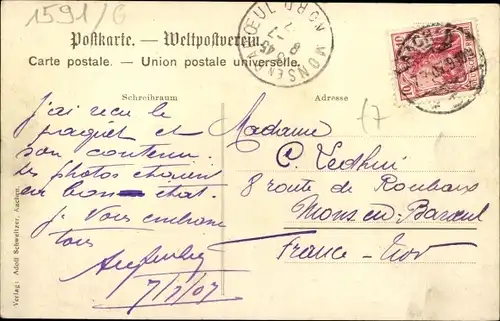 1591/G
Postkarte. — Weltpostverein.
Carte postale. — Union postale universelle.
MONS EN BAROEUL NORD
10 10
Schreibraum
Adresse
j'ai reçu le
paquet et
son contenu.
les photos étaient
en bon état.
je vous embrasse
tous
7/7/07
Madame
C.
8 route de Roubaix
Mons en Baroeul
France - Nor
Verlag: Adolf Schweitzer, Aachen.